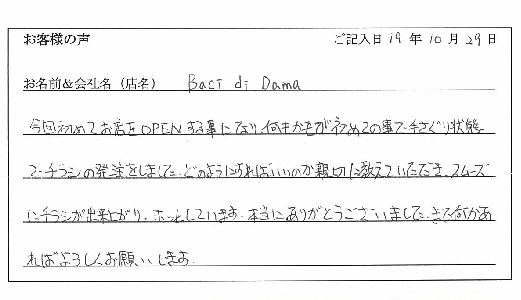 お客様の声 ご記入日 19 年 10 月 29 日
お名前&会社名（店名） Baci di Dama
今回初めてお店をOPENする事になり、何もかもが初めての事で手さぐり状態
で、チラシの発注をしました。どのようにすればいいのか親切に教えていただき、スムーズ
にチラシが出来上がり、ホッとしています。本当にありがとうございました。また何かあ
ればよろしくお願いします。